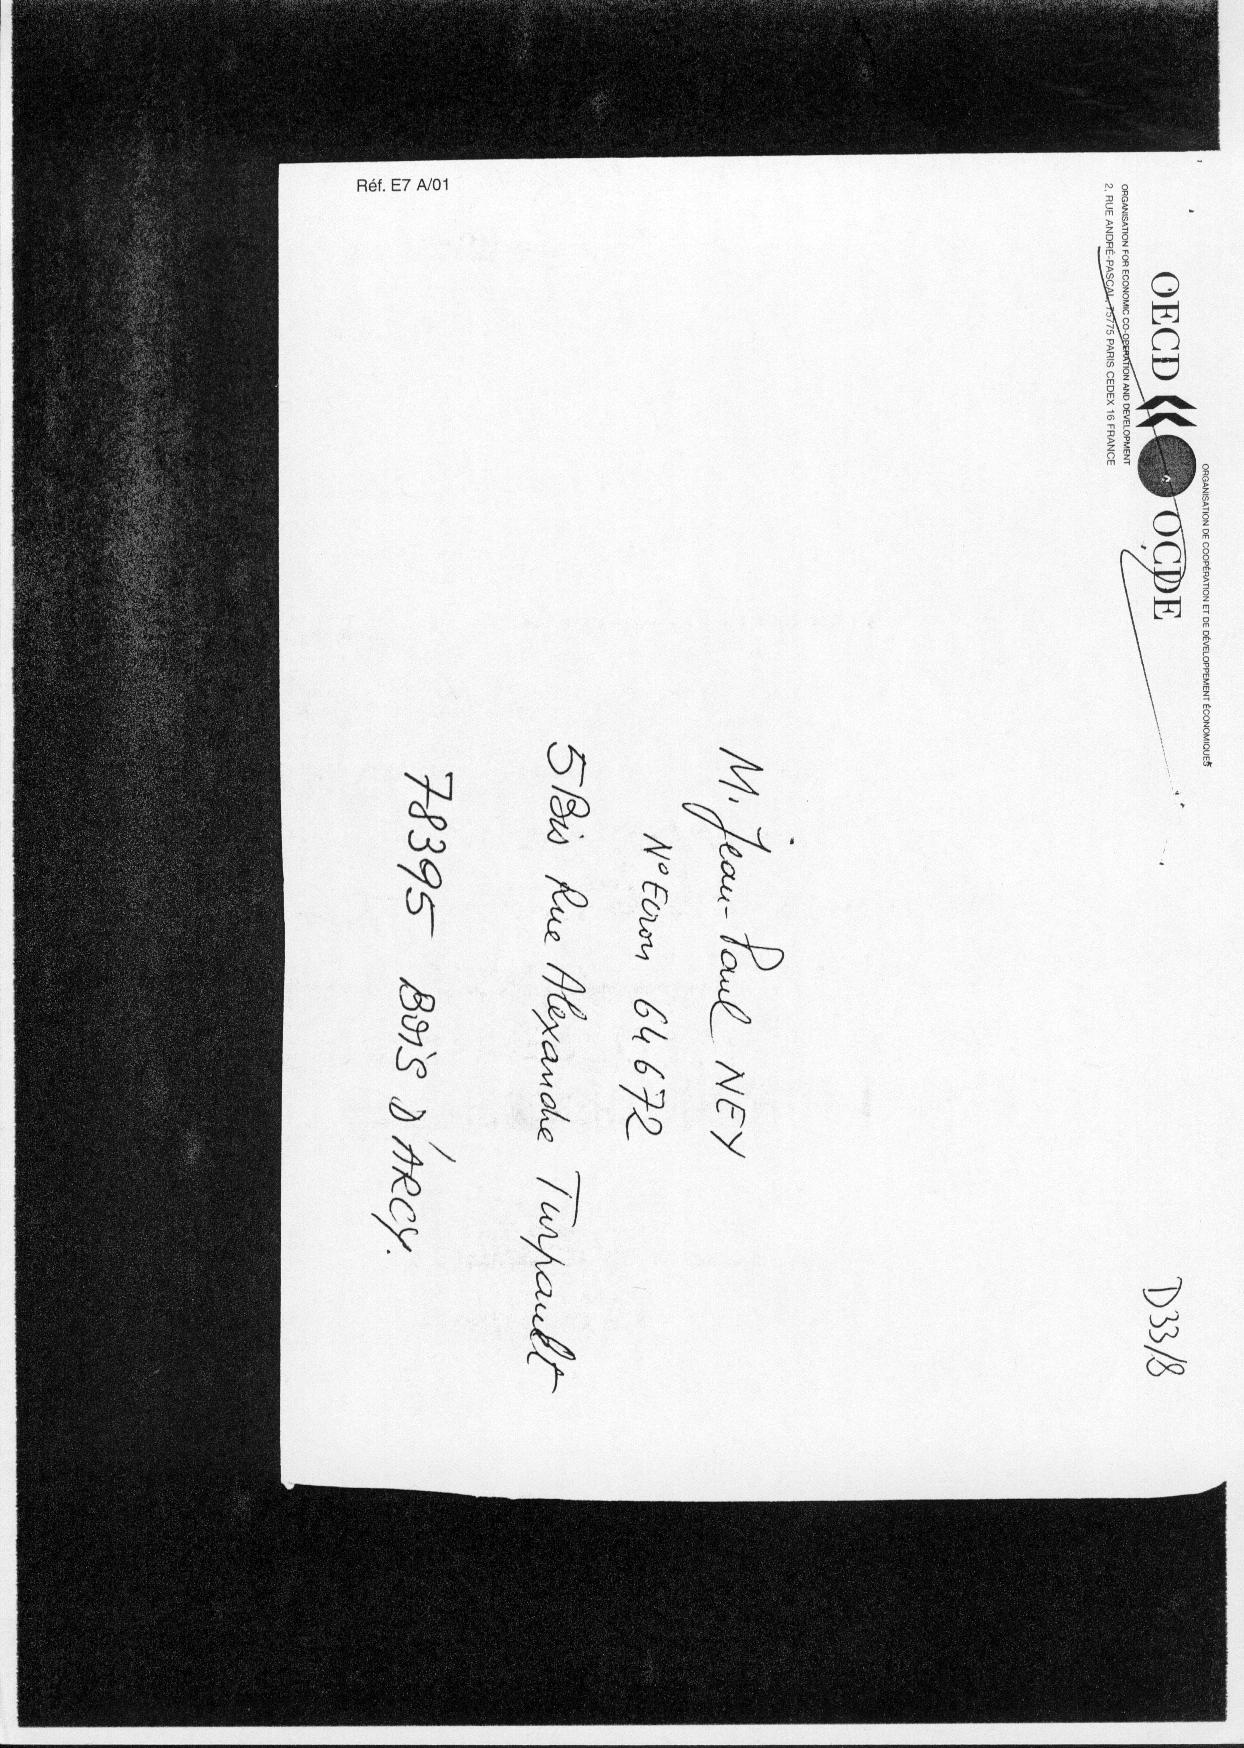 ORGANISATION DE COOPÉRATION ET DE DÉVELOPPEMENT ÉCONOMIQUES
OECD OCDE
ORGANISATION FOR ECONOMIC CO-OPERATION AND DEVELOPMENT
2, RUE ANDRÉ-PASCAL, 75775 PARIS CEDEX 16 FRANCE
D33/8
M. Jean-Paul NEY
N° Ecrou 64672
5 Bis Rue Alexandre Turpault
78395 BOIS D'ARCY.
Réf. E7 A/01